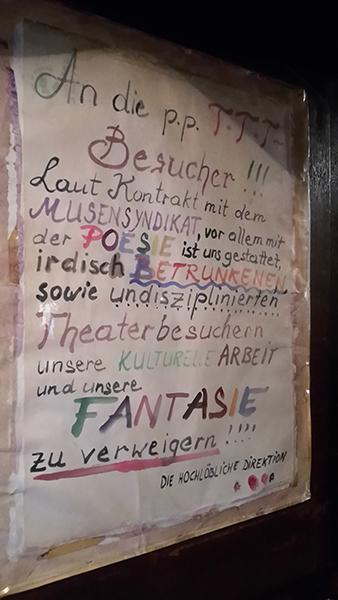 An die p.p. T.T.T-
Besucher !!!
Laut Kontrakt mit dem
MUSENSYNDIKAT, vor allem mit
der POESIE ist uns gestattet,
irdisch BETRUNKENEN
sowie undisziplinierten
Theaterbesuchern
unsere KULTURELLE ARBEIT
und unsere
FANTASIE
zu verweigern !!!!
DIE HOCHLÖBLICHE DIREKTION